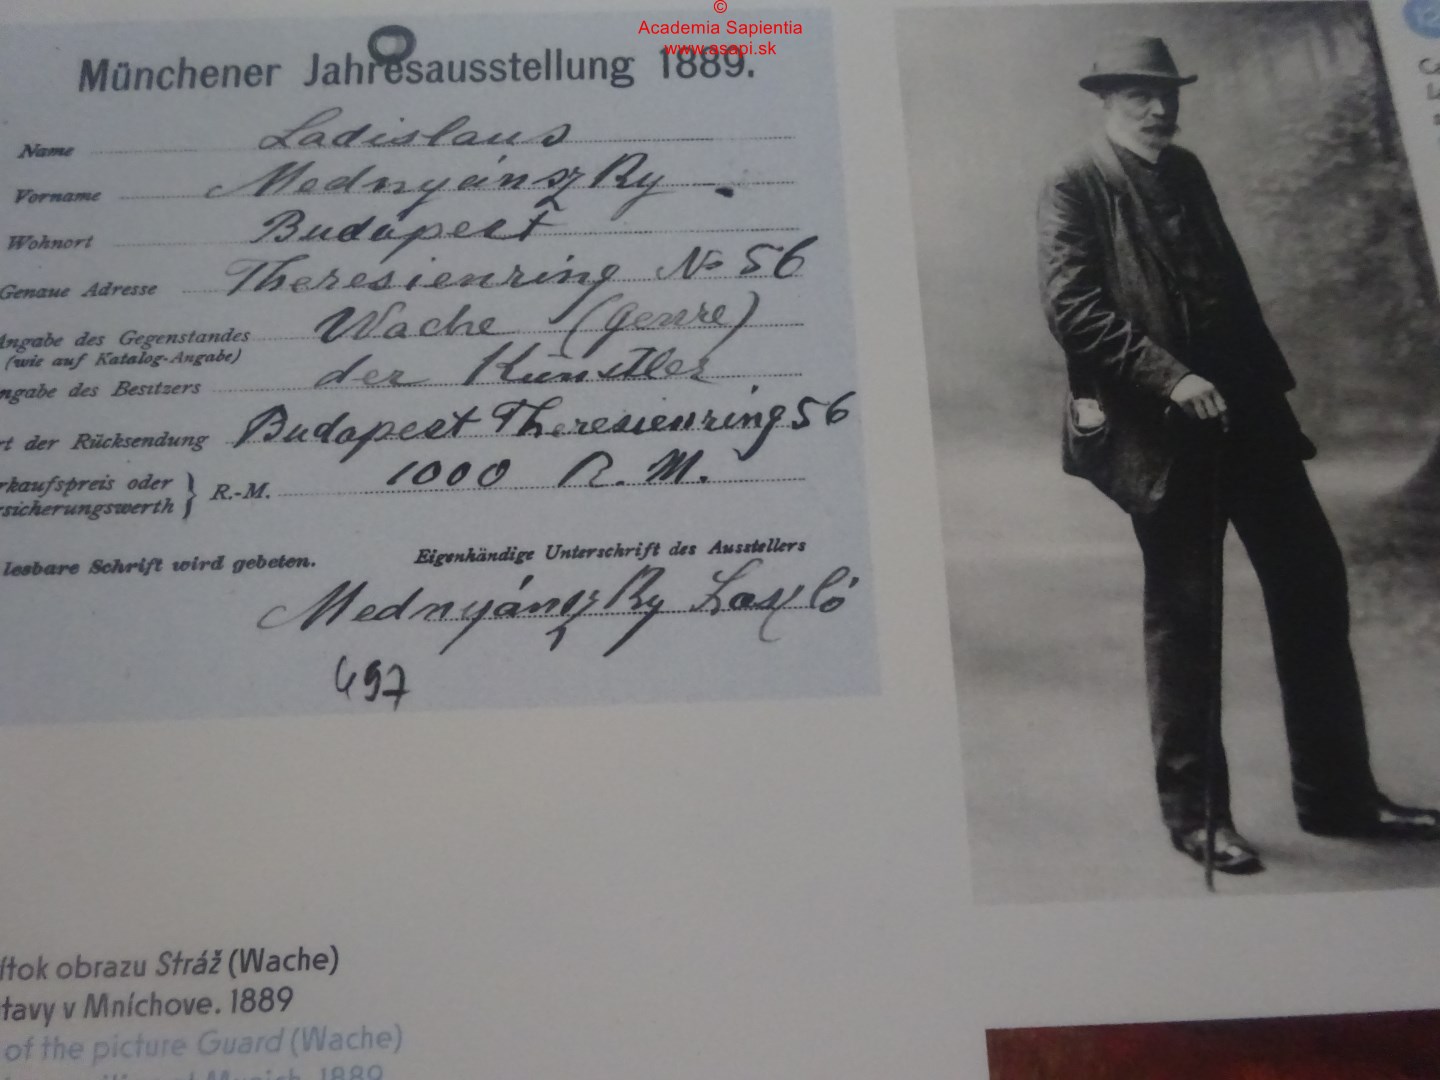 ©
Academia Sapientia
www.asapi.sk
Münchener Jahresausstellung 1889.
Name Ladislaus
Vorname Mednyánszky
Wohnort Budapest
Genaue Adresse Theresienring No 56
Angabe des Gegenstandes Wache (genre)
(wie auf Katalog-Angabe)
ngabe des Besitzers der Künstler
rt der Rücksendung Budapest Theresienring 56
rkaufspreis oder
rsicherungswerth } R.-M. 1000 R. M.
lesbare Schrift wird gebeten. Eigenhändige Unterschrift des Ausstellers
Mednyánszky László
497
ítok obrazu Stráž (Wache)
tavy v Mníchove. 1889
of the picture Guard (Wache)
Munich. 1889